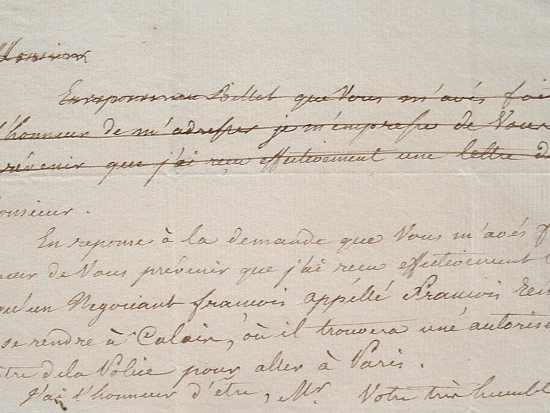 Monsieur
En reponse au Billet que Vous m'avés fai
l'honneur de m'adresser je m'empresse de Vous
prévenir que j'ai reçu effectivement une lettre d
onsieur.
En reponse à la demande que Vous m'avés f
neur de Vous prévenir que j'ai recu effectivement
qu'un Negociant francois appéllé Francois
se rendre à Calais, où il trouvera une autoris
tre de la Police pour aller à Paris.
J'ai l'honneur d'être, Mr. Votre très humbl